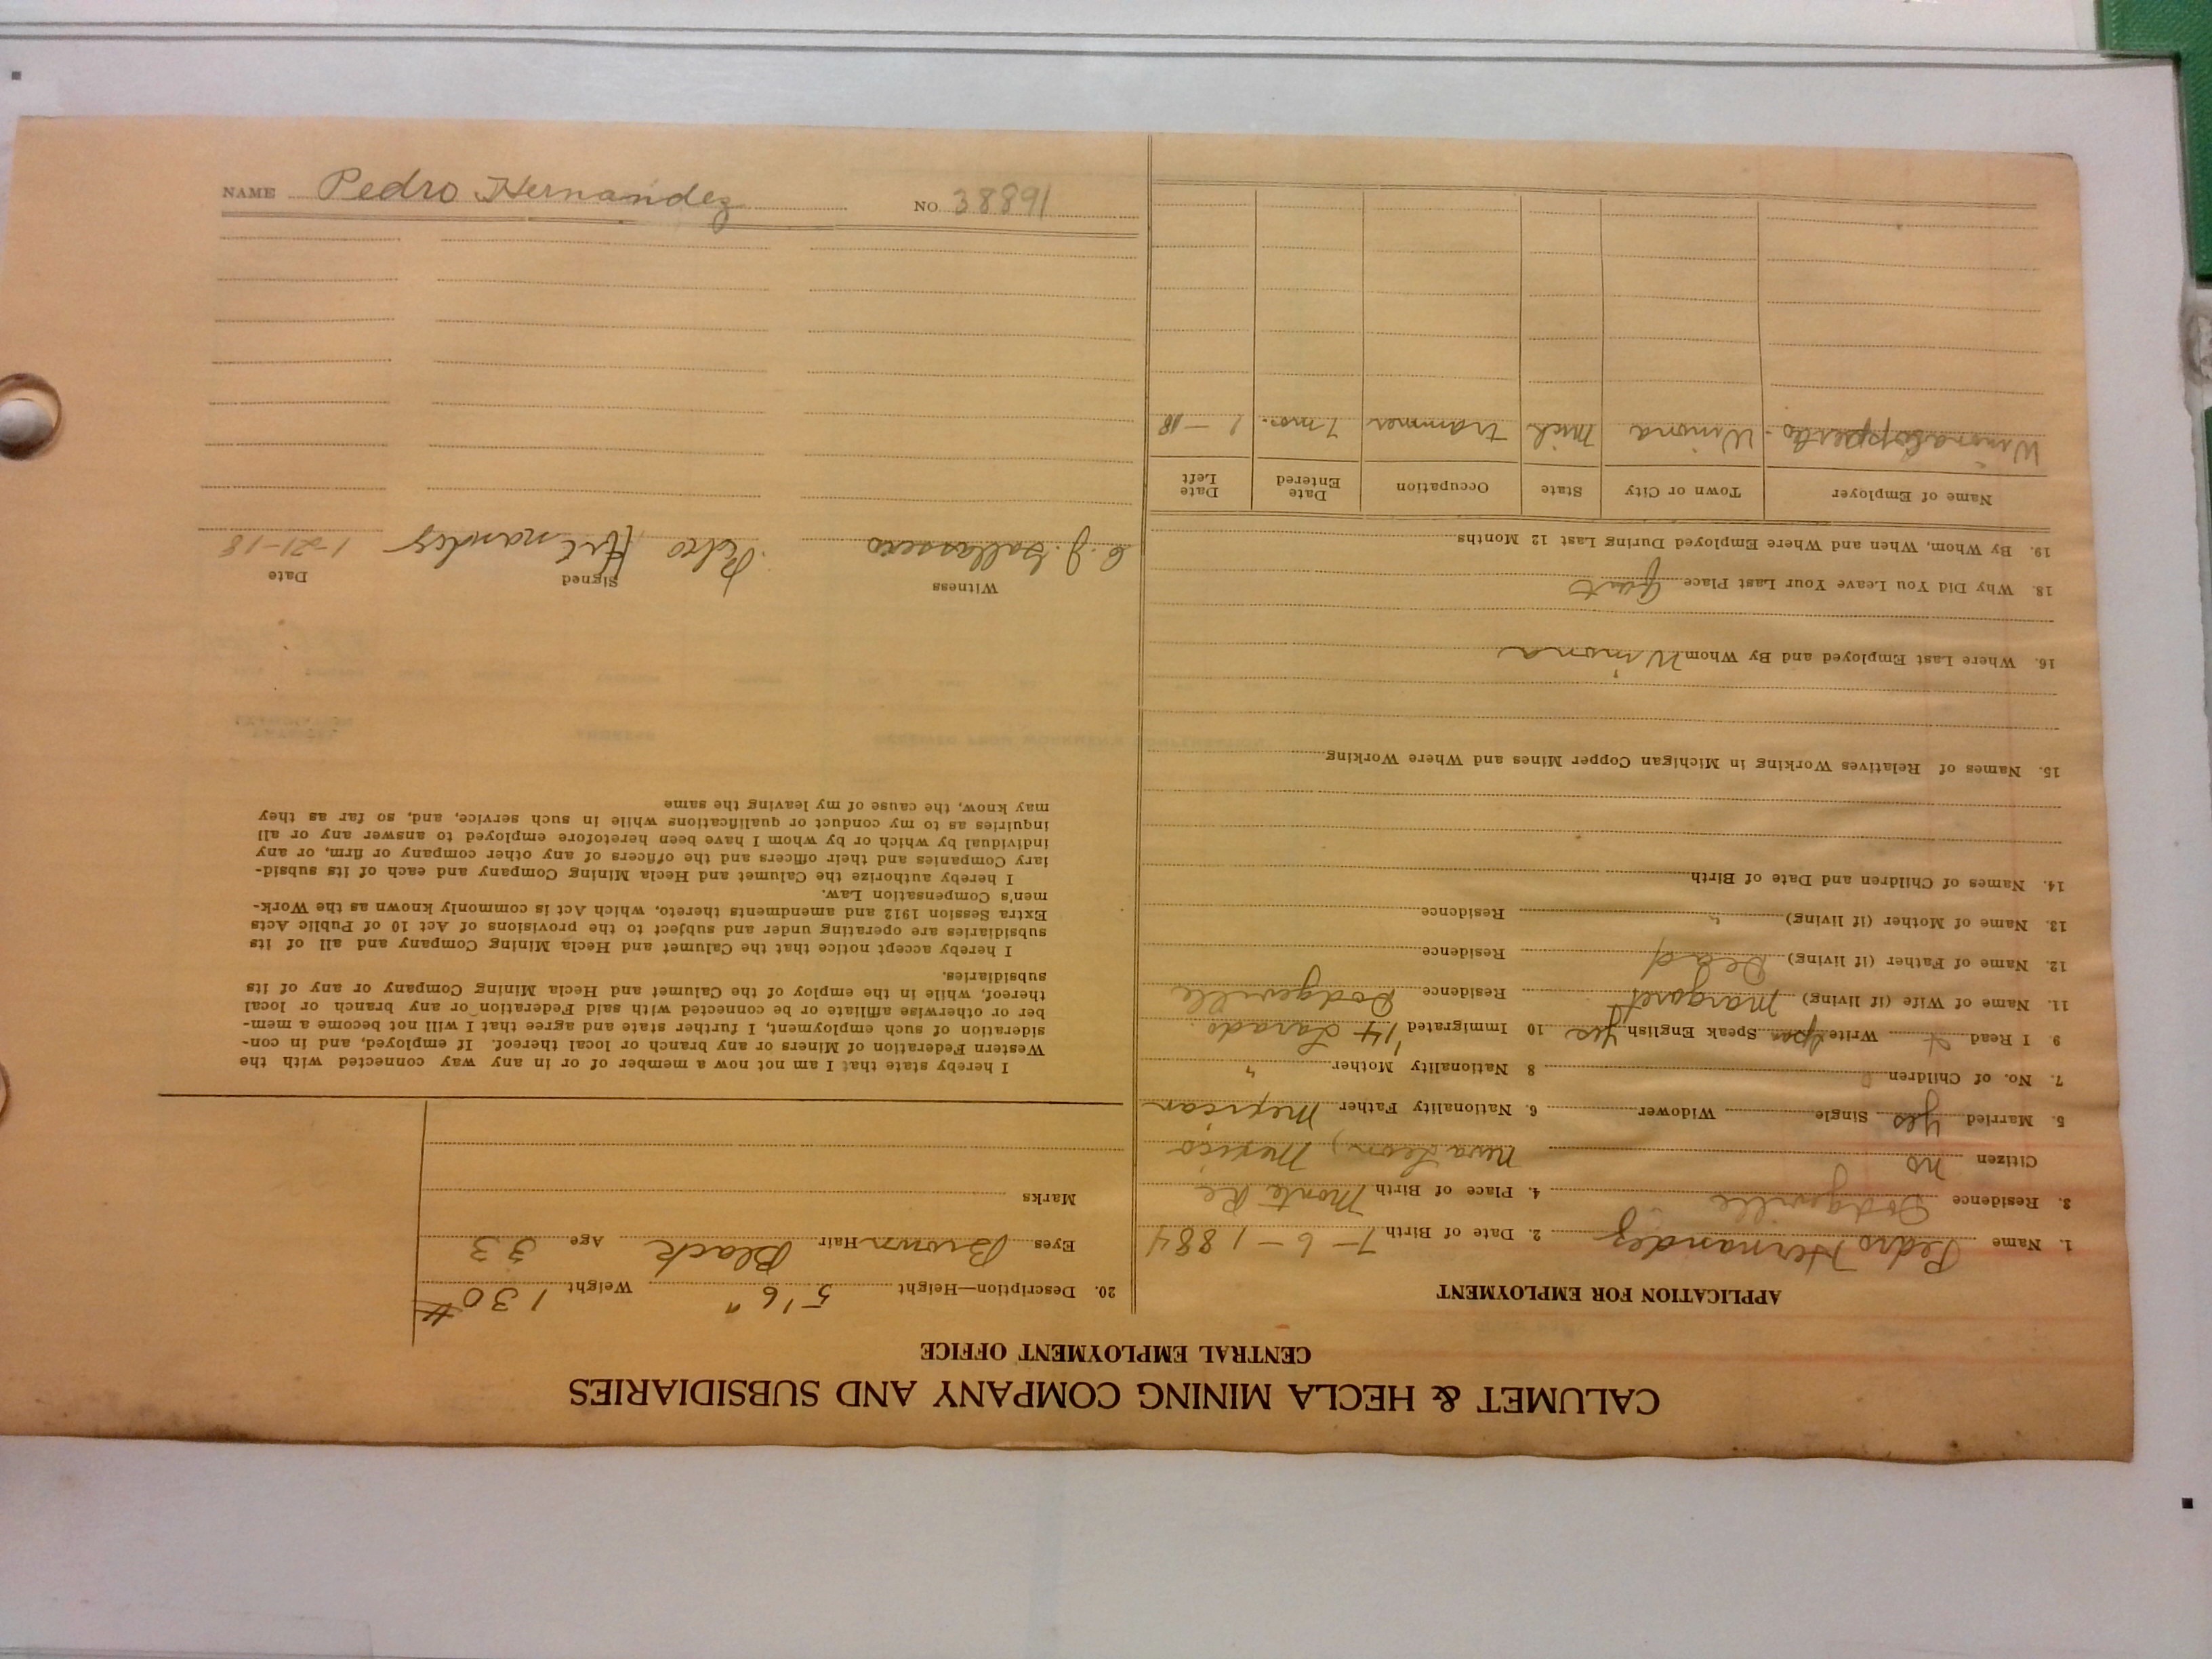 CALUMET & HECLA MINING COMPANY AND SUBSIDIARIES
CENTRAL EMPLOYMENT OFFICE
APPLICATION FOR EMPLOYMENT
1. Name Pedro Hernandez 2. Date of Birth 7-6-1884
3. Residence Dodgeville 4. Place of Birth Monte Re
Citizen no Nuva Leon, Mexico
5. Married yes Single Widower 6. Nationality Father Mexican
7. No. of Children 0 8 Nationality Mother "
9. I Read Write Speak English Yes 10 Immigrated '14 Larado.
11. Name of Wife (if living) Margaret Residence Dodgeville
12. Name of Father (if living) Dead Residence
13. Name of Mother (if living) " Residence
14. Names of Children and Date of Birth
15. Names of Relatives Working in Michigan Copper Mines and Where Working
16. Where Last Employed and By Whom Winona
18. Why Did You Leave Your Last Place Quit
19. By Whom, When and Where Employed During Last 12 Months
Name of Employer Town or City State Occupation Date Entered Date Left
Winona Copper Co. Winona Mich trammer 7 mo. 1-18
20. Description—Height 5'6" Weight 130#
Eyes Brown Hair Black Age 33
Marks
I hereby state that I am not now a member of or in any way connected with the
Western Federation of Miners or any branch or local thereof. If employed, and in con-
sideration of such employment, I further state and agree that I will not become a mem-
ber or otherwise affiliate or be connected with said Federation or any branch or local
thereof, while in the employ of the Calumet and Hecla Mining Company or any of its
subsidiaries.
I hereby accept notice that the Calumet and Hecla Mining Company and all of its
subsidiaries are operating under and subject to the provisions of Act 10 of Public Acts
Extra Session 1912 and amendments thereto, which Act is commonly known as the Work-
men's Compensation Law.
I hereby authorize the Calumet and Hecla Mining Company and each of its subsid-
iary Companies and their officers and the officers of any other company or firm, or any
individual by which or by whom I have been heretofore employed to answer any or all
inquiries as to my conduct or qualifications while in such service, and, so far as they
may know, the cause of my leaving the same
Witness Signed Date
Pedro Hernandez 1-21-18
NAME Pedro Hernandez NO. 38891